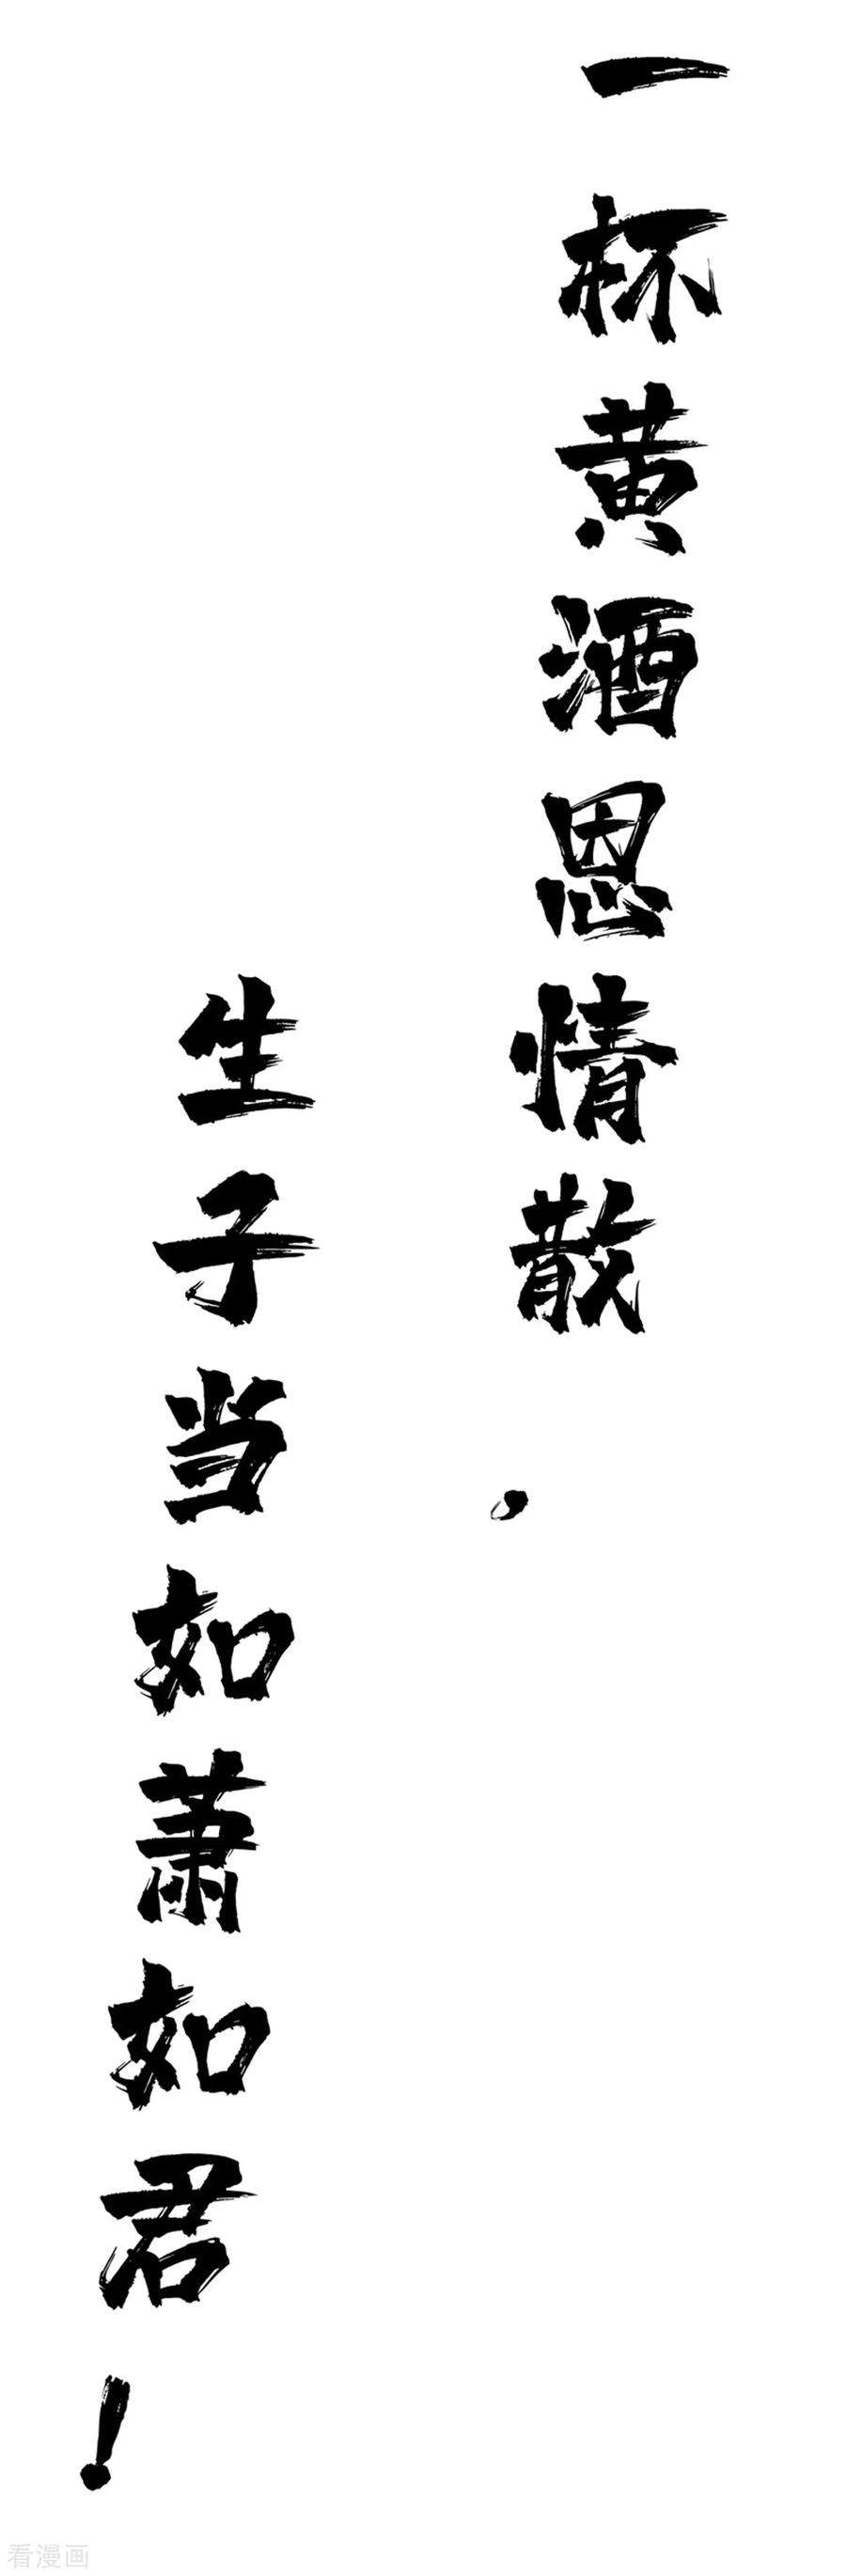 一杯黄酒恩情散，
生子当如萧如君！
看漫画